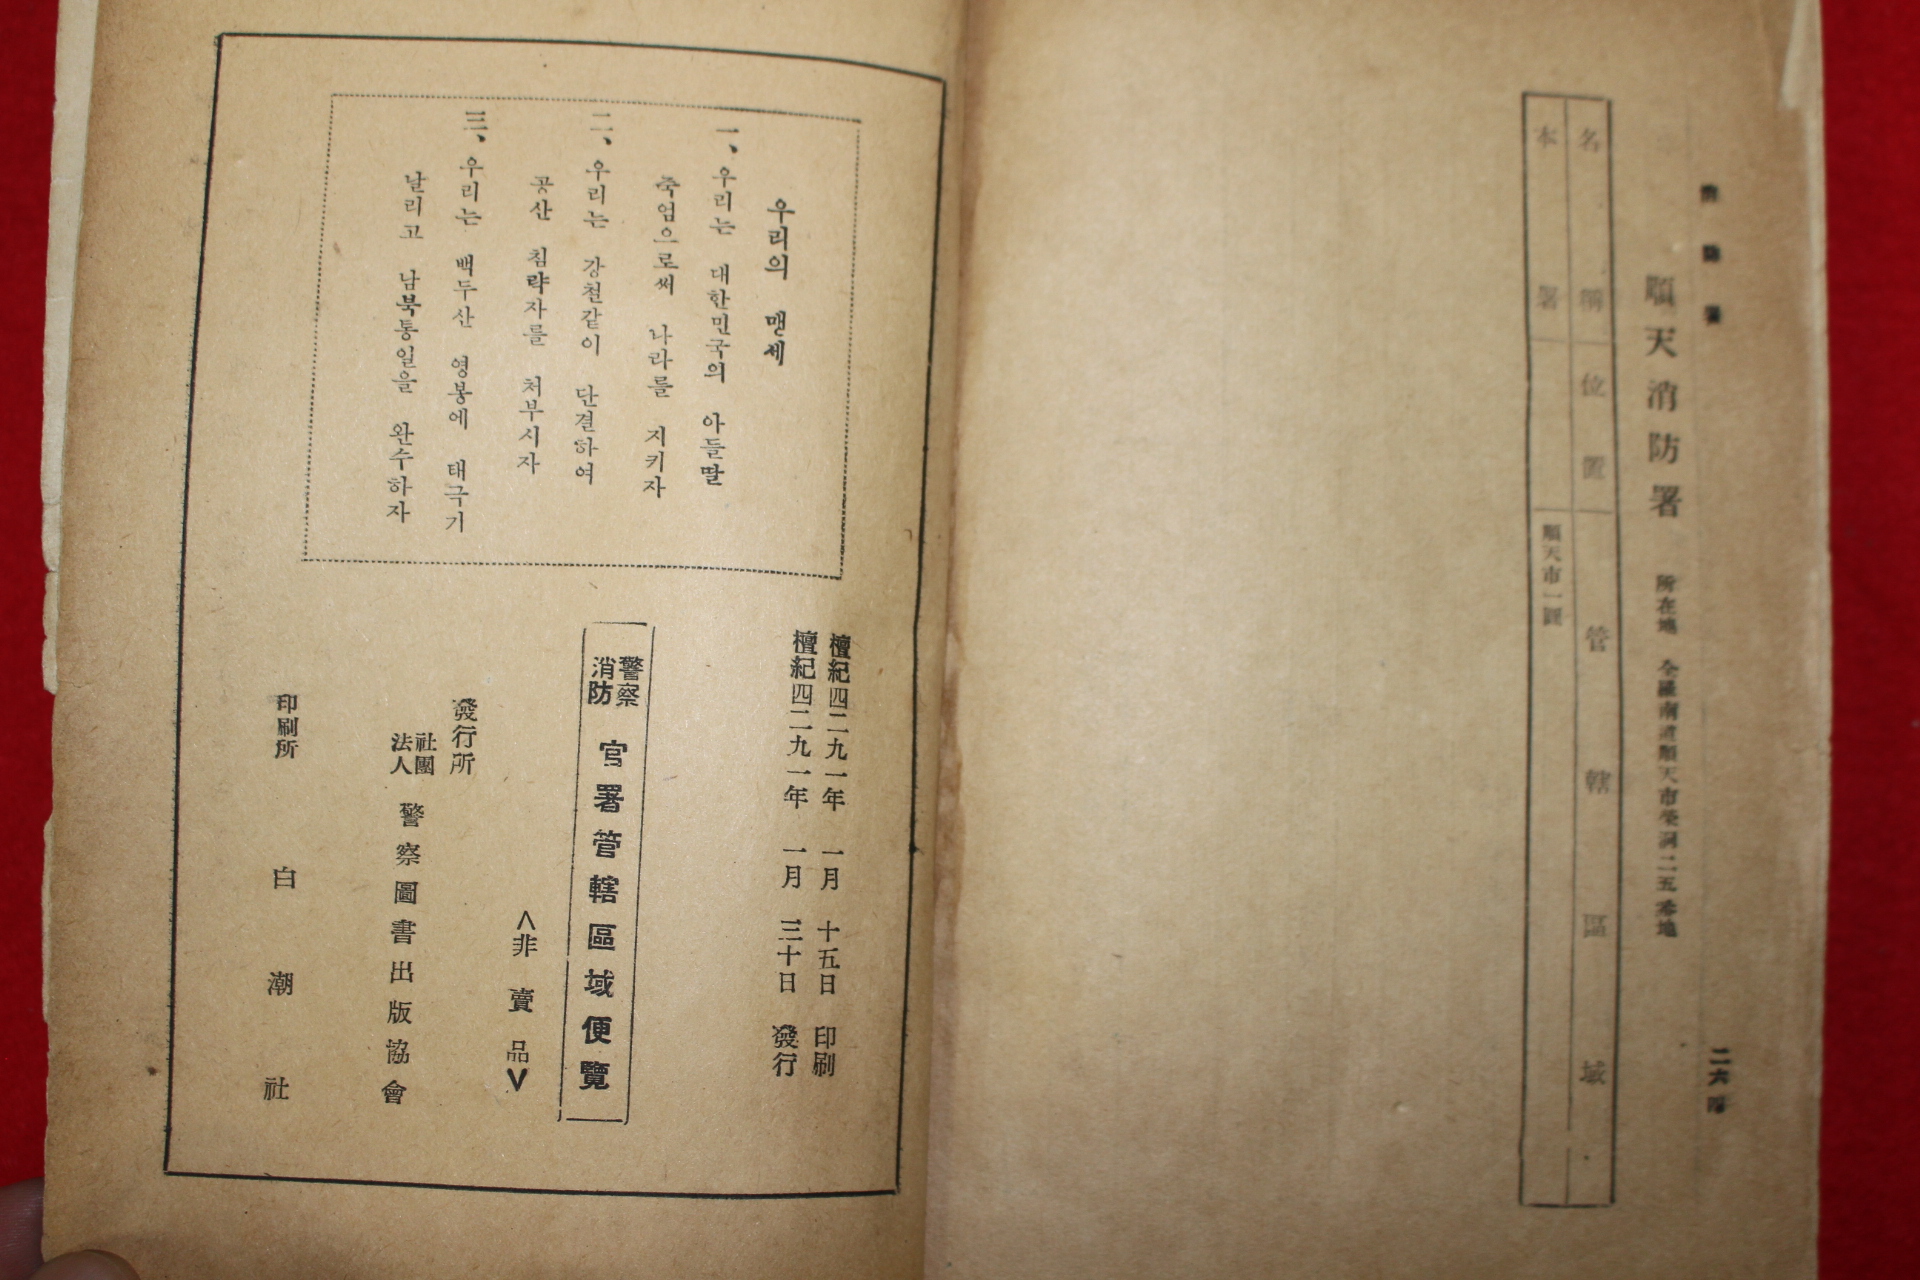 順天消防署 所在地 全羅南道順天市榮洞二五番地
名稱 位置 管轄區域
本署 順天市一圓
우리의 맹세
一、우리는 대한민국의 아들딸
죽엄으로써 나라를 지키자
二、우리는 강철같이 단결하여
공산 침략자를 처부시자
三、우리는 백두산 영봉에 태극기
날리고 남북통일을 완수하자
檀紀四二九一年 一月 十五日 印刷
檀紀四二九一年 一月 三十日 發行
警察
消防
官署管轄區域便覽
<非賣品>
發行所
社團
法人
警察圖書出版協會
印刷所 白潮社